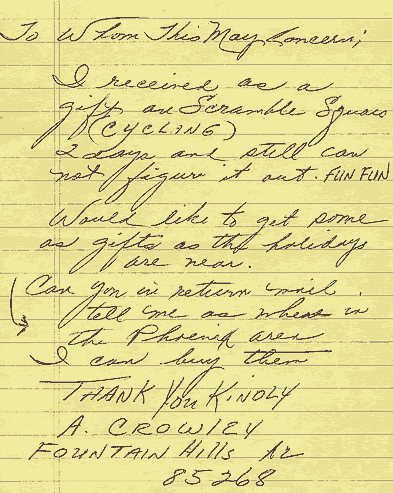 To Whom This May Concern;
I received as a
gift an Scramble Squares
(CYCLING)
2 days and still can
not figure it out. FUN FUN
Would like to get some
as gifts as the holidays
are near.
Can you in return mail
tell me as where in
the Phoenix area
I can buy them
THANK You KINDLY
A. CROWLEY
FOUNTAIN Hills Az
85268